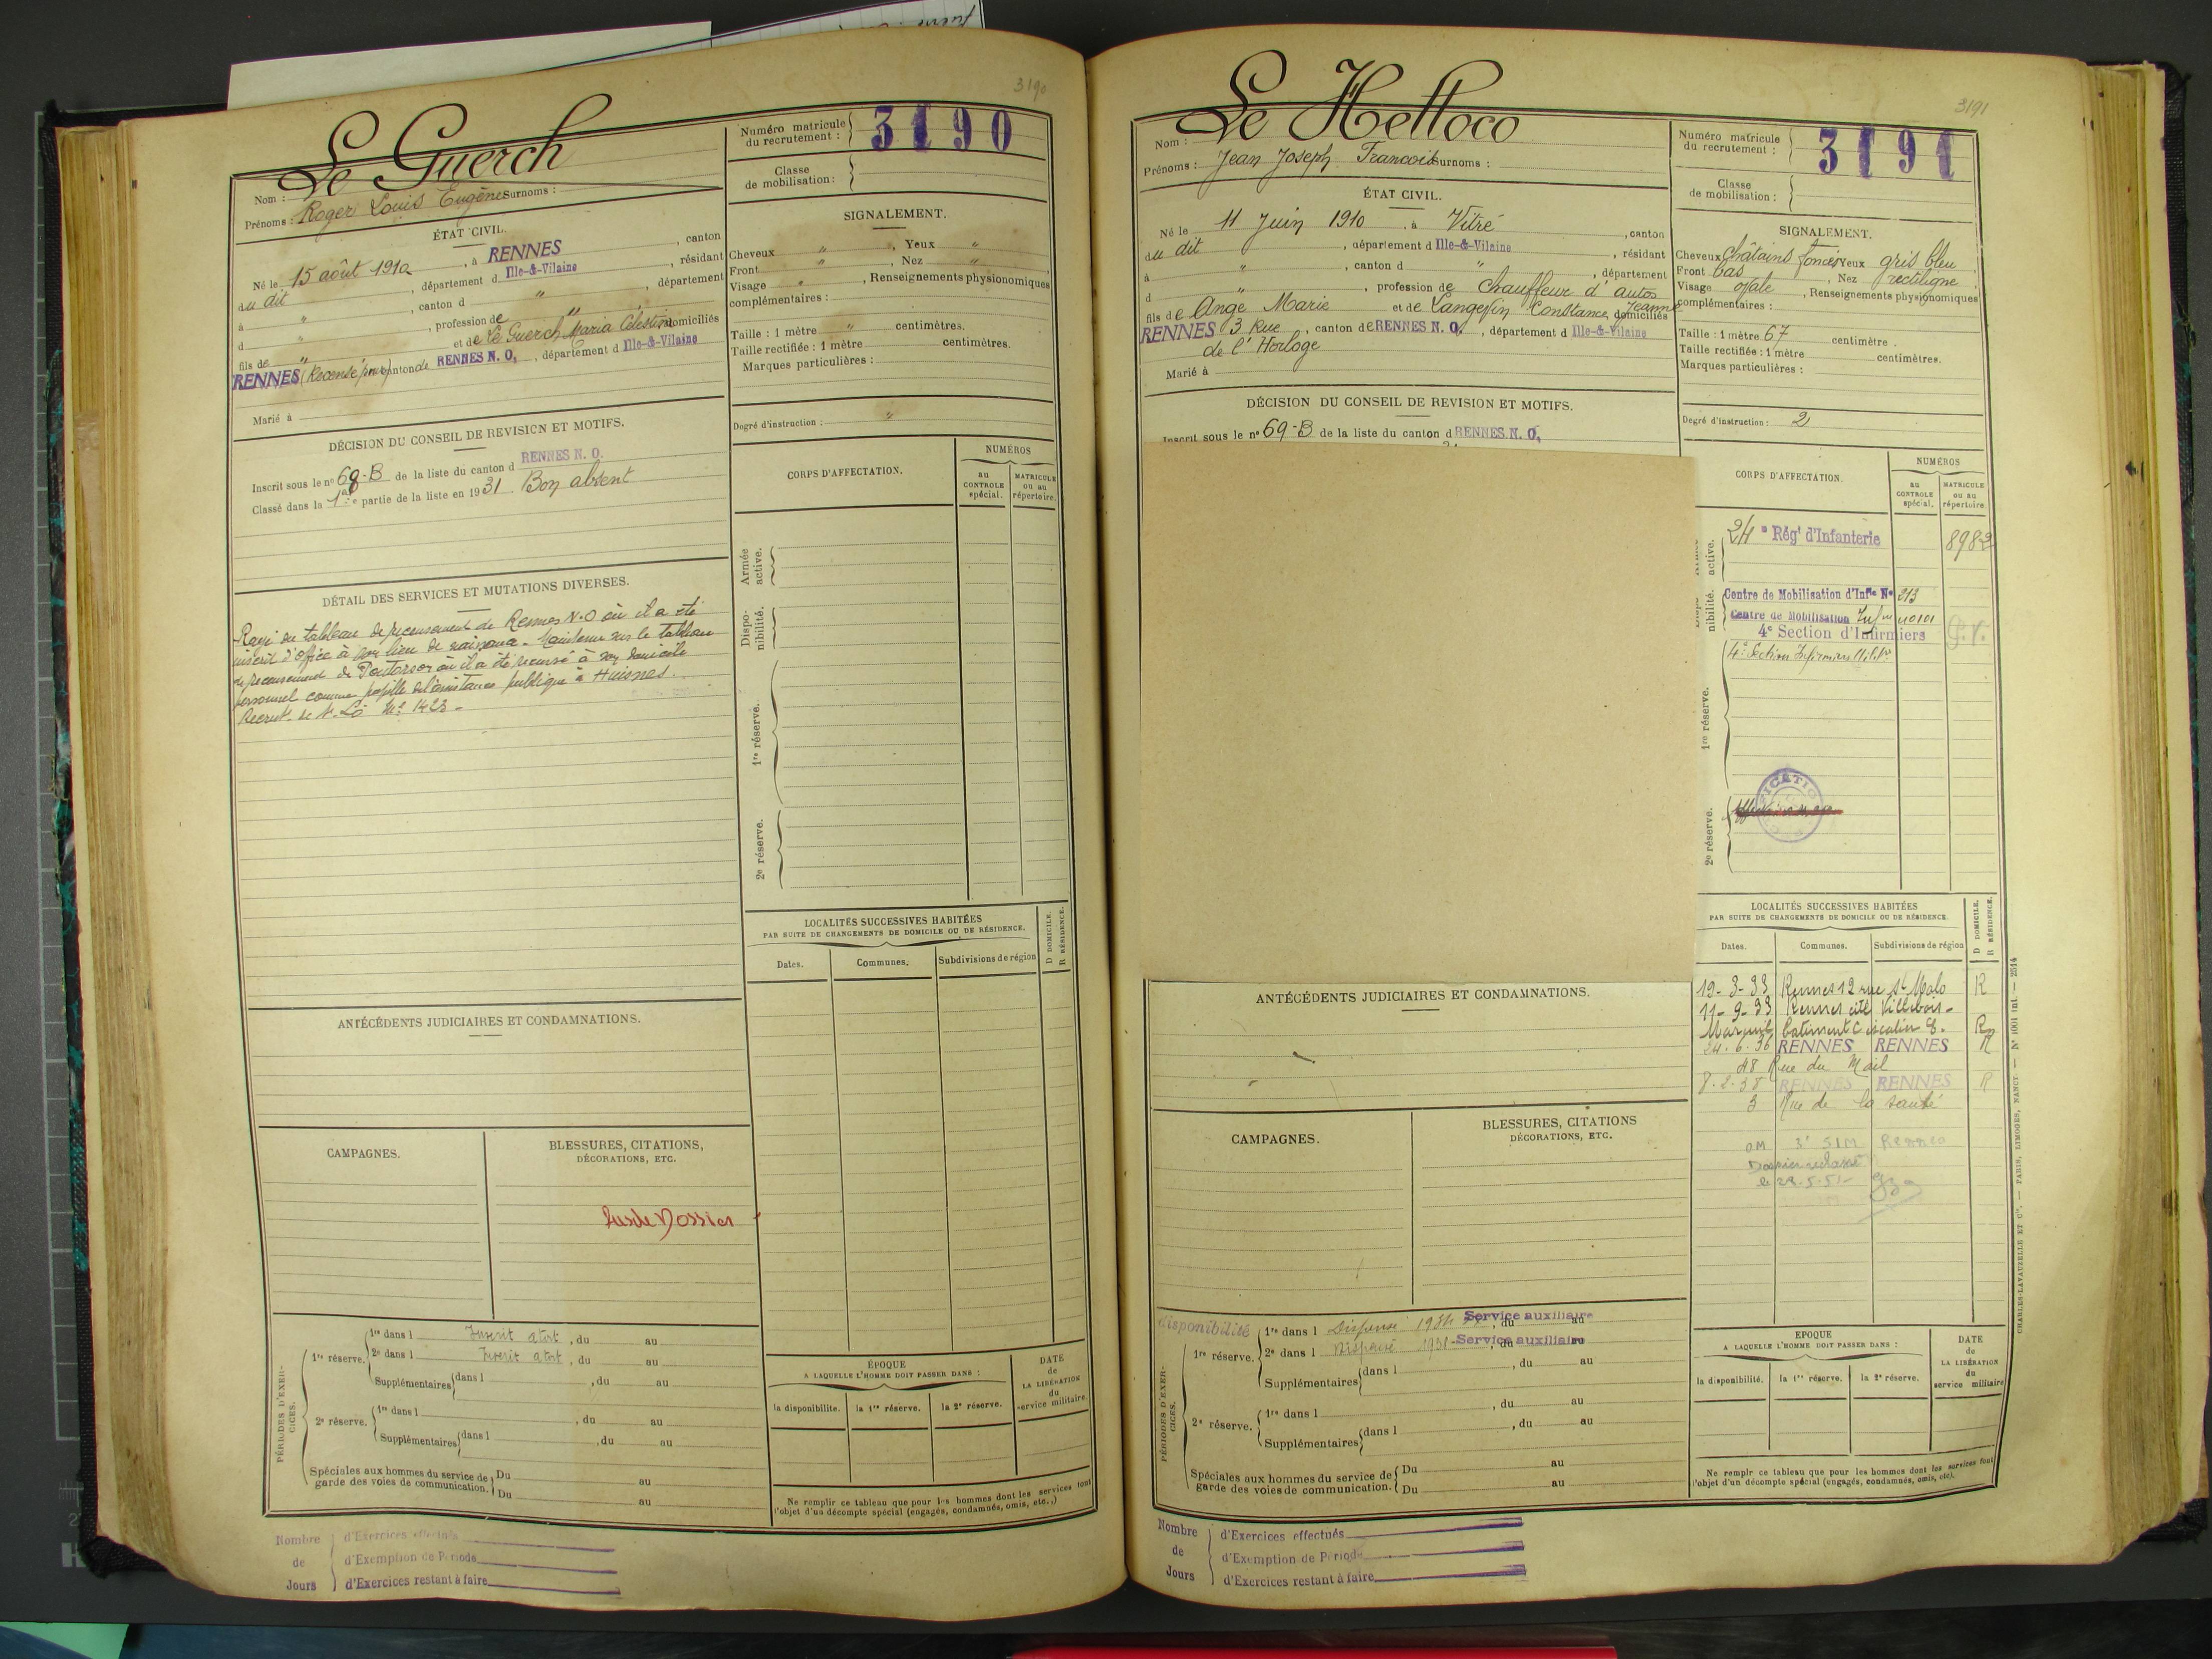 3190
Le Guerch
Nom :
Prénoms : Roger Louis Eugène Surnoms :
Numéro matricule du recrutement : 3190
Classe de mobilisation :
ÉTAT CIVIL.
Né le 15 août 1910, à RENNES, canton
du dit, département d Ille-&-Vilaine, résidant
à " , canton d " , département
d " , profession de "
fils de " et de Le Guerch Maria Célestine domiciliés
RENNES (Recensé pour) canton de RENNES N. O., département d Ille-&-Vilaine
Marié à
SIGNALEMENT.
Cheveux " , Yeux "
Front " , Nez "
Visage " , Renseignements physionomiques
complémentaires :
Taille : 1 mètre " centimètres.
Taille rectifiée : 1 mètre centimètres.
Marques particulières :
Degré d'instruction : "
DÉCISION DU CONSEIL DE REVISION ET MOTIFS.
Inscrit sous le n° 68-B de la liste du canton d RENNES N. O.
Classé dans la 1ère partie de la liste en 1931. Bon absent
DÉTAIL DES SERVICES ET MUTATIONS DIVERSES.
Rayé du tableau de recensement de Rennes N.O où il a été
inscrit d'office à son lieu de naissance. Maintenu sur le tableau
de recensement de Pontorson où il a été recensé à son domicile
personnel comme pupille de l'assistance publique à Huisnes.
Recrut. de St. Lô Mle 1423 -
CORPS D'AFFECTATION.
NUMÉROS
au CONTROLE spécial.
MATRICULE ou au répertoire.
Armée active.
Disponibilité.
1re réserve.
2e réserve.
LOCALITÉS SUCCESSIVES HABITÉES
PAR SUITE DE CHANGEMENTS DE DOMICILE OU DE RÉSIDENCE.
D DOMICILE.
R RÉSIDENCE.
Dates. Communes. Subdivisions de région
ANTÉCÉDENTS JUDICIAIRES ET CONDAMNATIONS.
CAMPAGNES.
BLESSURES, CITATIONS,
DÉCORATIONS, ETC.
Pas de Dossier
PÉRIODES D'EXERCICES.
1re réserve. 1re dans l Inscrit à tort, du au
2e dans l Inscrit à tort, du au
Supplémentaires dans l , du au
2e réserve. 1re dans l , du au
Supplémentaires dans l , du au
Spéciales aux hommes du service de garde des voies de communication. Du au
Du au
ÉPOQUE
A LAQUELLE L'HOMME DOIT PASSER DANS :
la disponibilité. la 1re réserve. la 2e réserve.
DATE de LA LIBÉRATION du service militaire.
Ne remplir ce tableau que pour les hommes dont les services font
l'objet d'un décompte spécial (engagés, condamnés, omis, etc.)
Nombre de Jours
d'Exercices effectués
d'Exemption de Période
d'Exercices restant à faire
3191
Le Helloco
Nom :
Prénoms : Jean Joseph François Surnoms :
Numéro matricule du recrutement : 3191
Classe de mobilisation :
ÉTAT CIVIL.
Né le 11 Juin 1910, à Vitré, canton
du dit, département d Ille-&-Vilaine, résidant
à " , canton d " , département
d " , profession de Chauffeur d'autos
fils de Ange Marie et de Langevin Constance Jeanne domiciliés
RENNES 3 Rue, canton de RENNES N. O., département d Ille-&-Vilaine
de l'Horloge
Marié à
SIGNALEMENT.
Cheveux châtains foncés Yeux gris bleu
Front bas, Nez rectiligne
Visage ovale, Renseignements physionomiques
complémentaires :
Taille : 1 mètre 67 centimètre.
Taille rectifiée : 1 mètre centimètres.
Marques particulières :
Degré d'instruction : 2
DÉCISION DU CONSEIL DE REVISION ET MOTIFS.
Inscrit sous le n° 69-B de la liste du canton d RENNES. N. O.
CORPS D'AFFECTATION.
NUMÉROS
au CONTROLE spécial.
MATRICULE ou au répertoire
active.
24e Régt d'Infanterie 8982
nibilité.
Centre de Mobilisation d'Infie N° 213
Centre de Mobilisation
4e Section d'Infirmiers
4e Section Infirmiers
1re réserve.
2e réserve.
LOCALITÉS SUCCESSIVES HABITÉES
PAR SUITE DE CHANGEMENTS DE DOMICILE OU DE RÉSIDENCE
D DOMICILE.
R RÉSIDENCE.
Dates. Communes. Subdivisions de région
19-3-33 Rennes 12 rue St Malo R
11-9-33 Rennes cité Villebois-
Mareuil batiment C escalier 8. R
24.6.36 RENNES RENNES R
48 Rue du Mail
8.2.38 RENNES RENNES R
3 Rue de la santé
OM 3e SIM Rennes
Dossier reclassé
le 28-5-51-
ANTÉCÉDENTS JUDICIAIRES ET CONDAMNATIONS.
CAMPAGNES.
BLESSURES, CITATIONS
DÉCORATIONS, ETC.
PÉRIODES D'EXERCICES.
disponibilité
1re réserve. 1re dans l Dispensé 193 Service auxiliaire, du au
2e dans l Dispensé 1931- Service auxiliaire, du au
Supplémentaires dans l , du au
2e réserve. 1re dans l , du au
Supplémentaires dans l , du au
Spéciales aux hommes du service de garde des voies de communication. Du au
Du au
EPOQUE
A LAQUELLE L'HOMME DOIT PASSER DANS :
la disponibilité. la 1re réserve. la 2e réserve.
DATE de LA LIBÉRATION du service militaire
Ne remplir ce tableau que pour les hommes dont les services font
l'objet d'un décompte spécial (engagés, condamnés, omis, etc.)
Nombre de Jours
d'Exercices effectués
d'Exemption de Période
d'Exercices restant à faire
CHARLES-LAVAUZELLE ET Cie. — PARIS, LIMOGES, NANCY. — N° 1001 int. — 2514